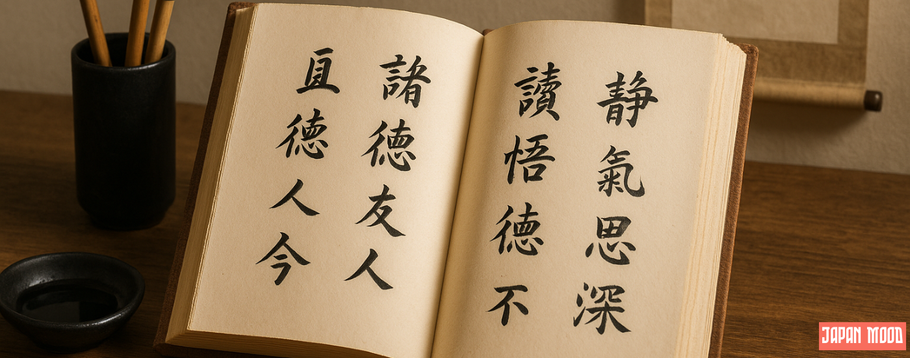 静氣思深
讀悟德不
諸德友人
直德人今
JAPAN MOOD